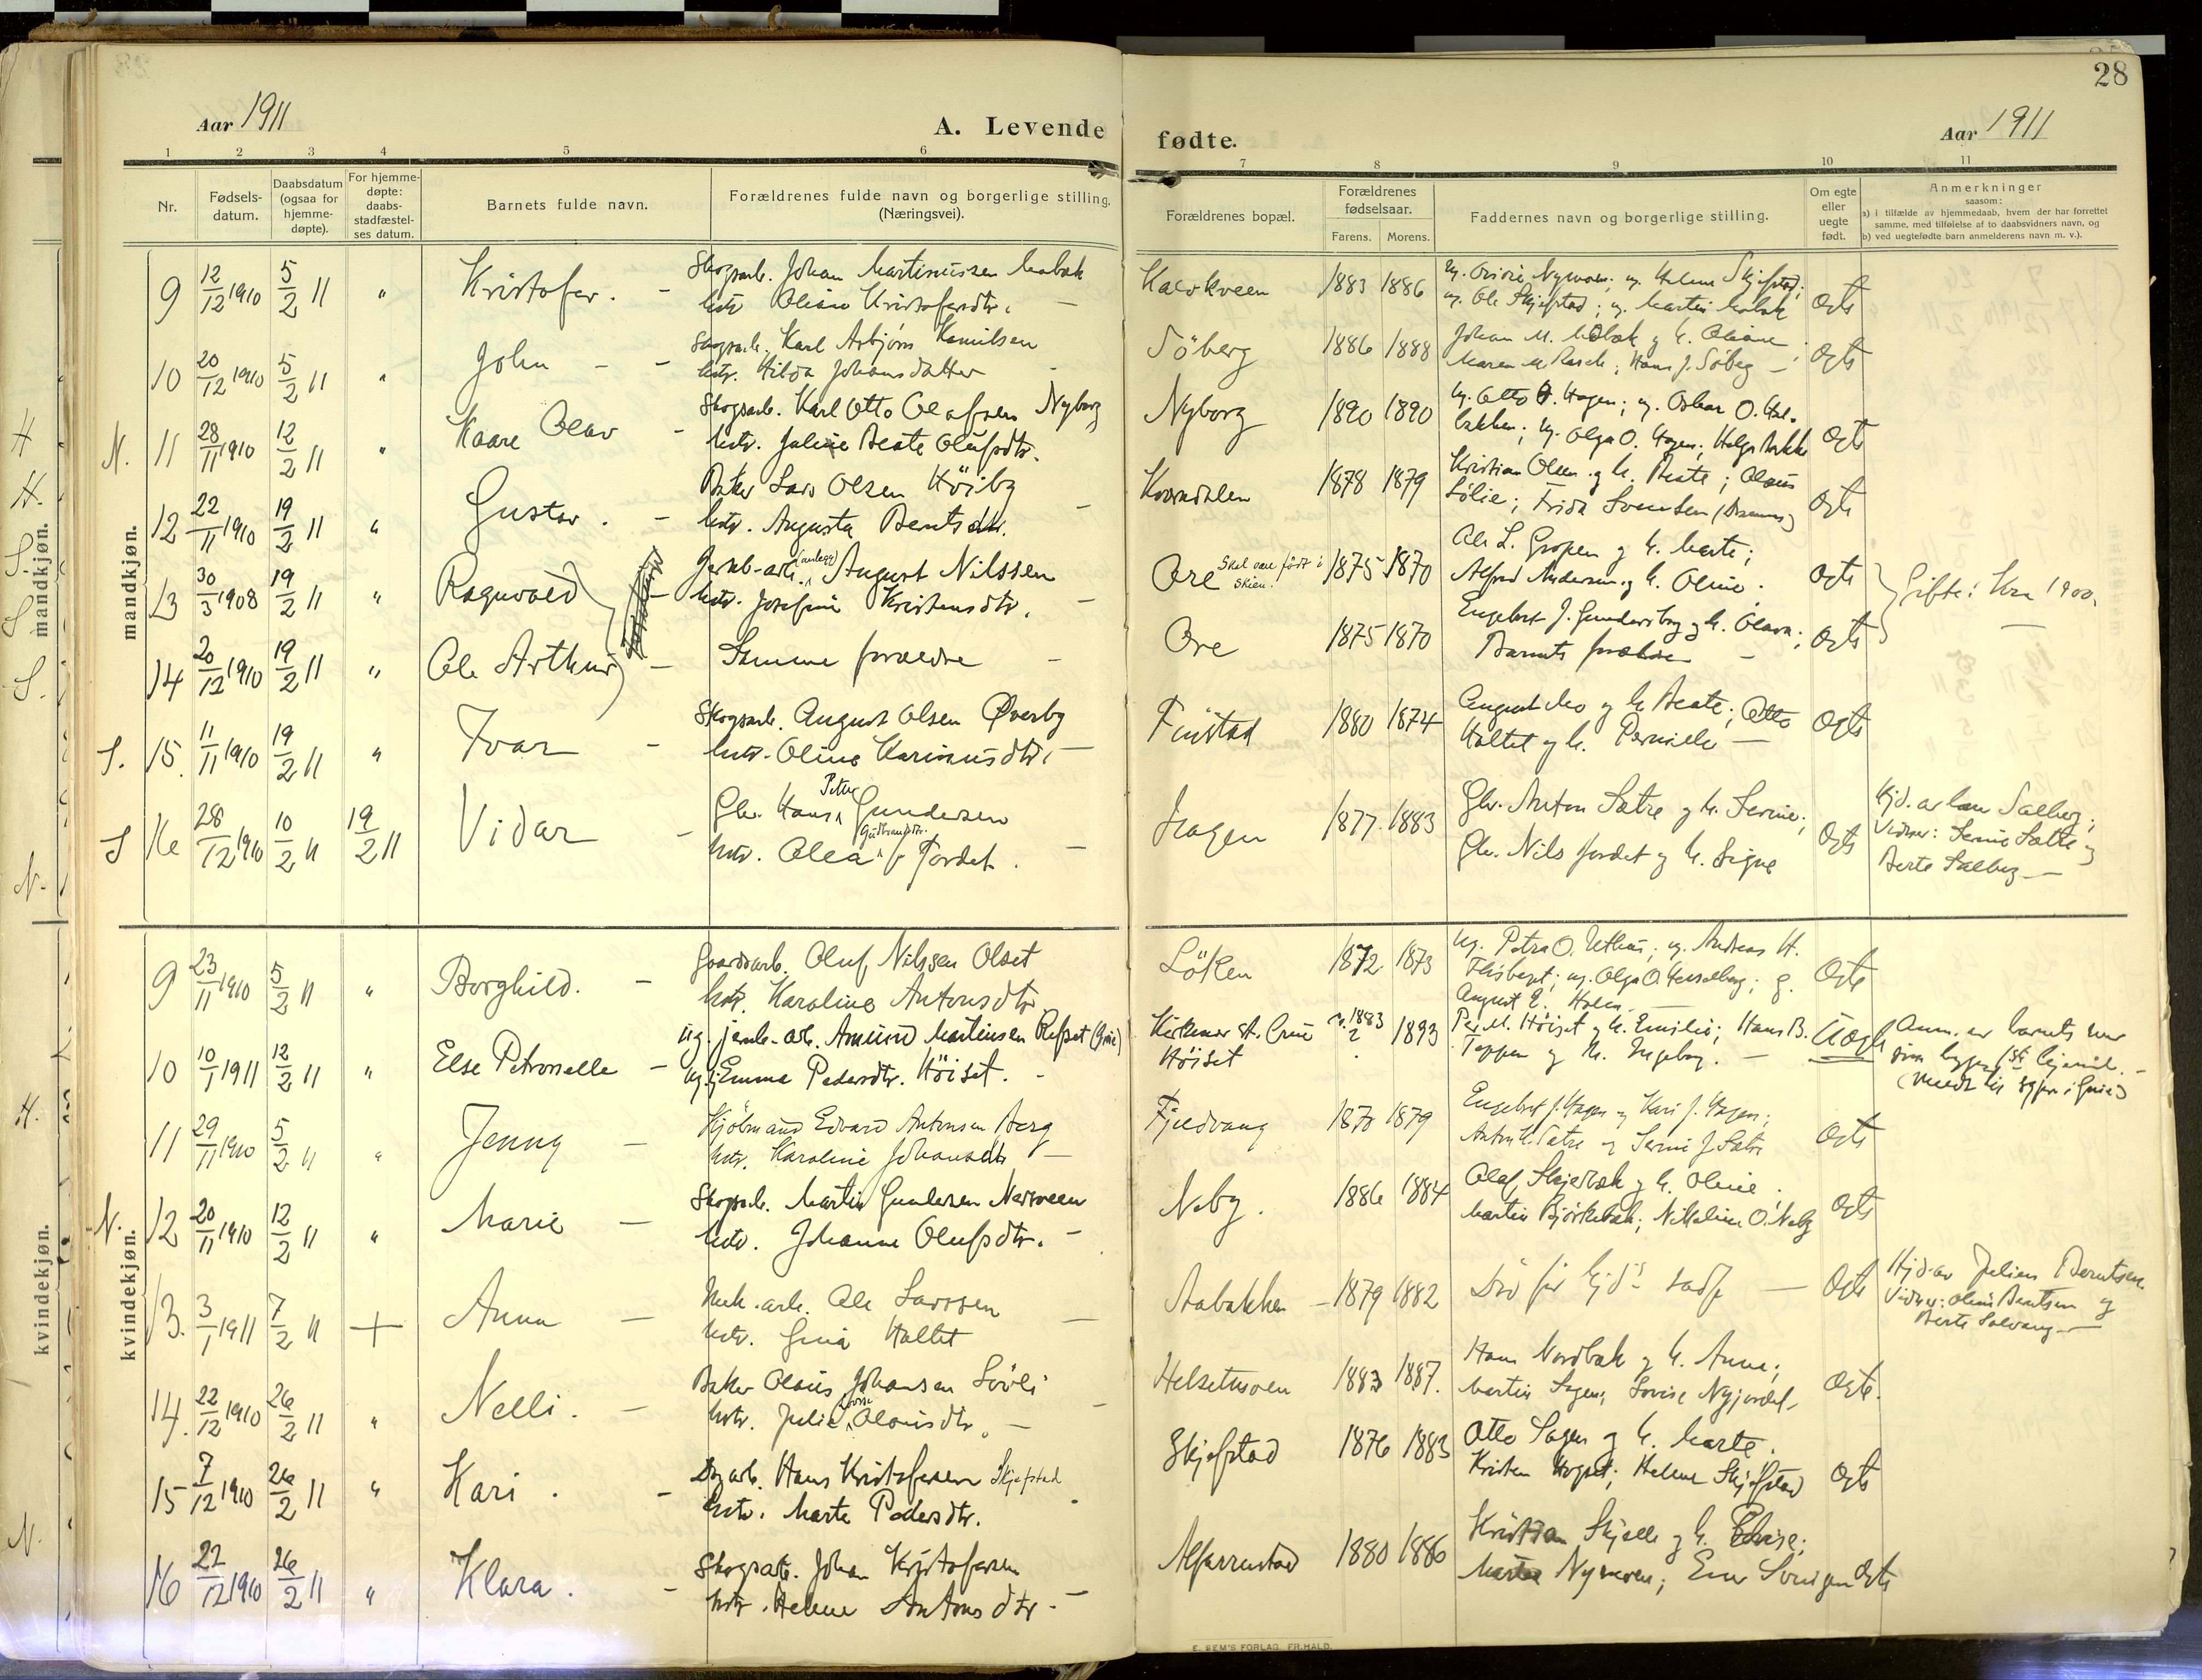 28
Aar 1911
A. Levende
fødte.
Aar 1911
1 2 3 4 5 6
7 8 9 10 11
Nr.
Fødsels-
datum.
Daabsdatum
(ogsaa for
hjemme-
døpte).
For hjemme-
døpte:
daabs-
stadfæstel-
ses datum.
Barnets fulde navn.
Forældrenes fulde navn og borgerlige stilling.
(Næringsvei).
Forældrenes bopæl.
Forældrenes
fødselsaar.
Farens. Morens.
Faddernes navn og borgerlige stilling.
Om egte
eller
uegte
født.
Anmerkninger
saasom:
a) i tilfælde av hjemmedaab, hvem der har forrettet
samme, med tilføielse af to daabsvidners navn, og
b) ved uegtefødte barn anmelderens navn m. v.).
mandkjøn.
mandkjøn.
9 12/12 1910 5/2 11 " Kristofer. - Skogsarb. Johan Martinussen
hstr Oliane Kristofersdtr. - 1883 1886
ug. Ole Skjefstad; ug. Martin Egte
10 20/12 1910 5/2 11 " John - - Skogsarb. Karl Asbjørn Kamilsen
hstr. Hilda Johansdatter - Söberg 1886 1888 Johan M. Mobæk g h. Oliane
Maren M. Rasch; Hans J. Söberg - Egte
N. 11 28/11 1910 12/2 11 " Kaare Olav - Skogsarb. Karl Otto Olafsen Nyborg
hstr. Juline Beate Olufsdtr. Nyborg 1890 1890 ug. Otto O. Hagen; ug. Oskar O.
bakken; ug. Olga O. Hagen; Helga Bakke Egte
12 22/11 1910 19/2 11 " Gustav. - Baker Lars Olsen Höiby
hstr. Augusta Berntsdtr. - 1878 1879 Kristian Olsen og h. Beate; Olaus
Sölie; Frida Svendsen Egte
13 30/3 1908 19/2 11 " Ragnvald Jernb-arb. (anlegg) August Nilssen
hstr. Josefine Kristensdtr. - Ore Skal være født i
Skien. 1875 1870 Ole L. Gropen og h. Marte;
Alfred Andersen og h. Oline. Egte Gifte: Kra 1900.
14 20/12 1910 19/2 11 " Ole Arthur - Samme forældre - Ore 1875 1870 Engebret J. Gundersborg g h. Olava;
Barnets forældre - Egte
S. 15. 11/11 1910 19/2 11 " Ivar - Skogsarb. August Olsen Øverby
hstr. Oline Karinusdtr. - Finstad 1880 1874 August Mo og h Beate; Otto
Haltet og h. Pernille - Egte
S 16 28/12 1910 10/2 11 19/2 11 Vidar - Gbr. Hans Peter Gundersen
hstr. Olea Gudbrandsdtr. f. Fordet. - Hagen 1877. 1883 Gbr. Anton Sætre og h. Serine;
Gbr. Nils Fordet og h. Signe Egte Hjd. av Salberg;
Vidner: Serine Sætre og
Berte Salberg -
kvindekjøn.
kvindekjøn.
9 23/11 1910 5/2 11 " Borghild. - Gaardsarb. Oluf Nilssen Olset
hstr. Karoline Antonsdtr Löken 1872 1873 ug. Petra O. Uthus; ug. Andreas H.
Flisberget; ug. Olga O. Hesselberg; g.
August E. Holen. - Egte
10 10/1 1911 12/2 11 " Else Petronelle - ug. jernb-arb. Amund Martinsen Refset (Grue)
ug. Emma Pedersdtr. Höiset. - Kirkenær st. Grue
Höiset 1883 1893 Per M. Höiset og h. Emilie; Hans B.
Toppen og h. Ingeborg. - Uegte Anm. av barnets mor
11 29/11 1910 5/2 11 " Jenny - Hjölmand Edvard Antonsen Berg
hstr. Karoline Johansdtr - Fjeldvang 1870 1879 Engebret J. Hagen og Kari J. Hagen;
Anton H. Sætre og Serine J. Sætre Egte
N. 12 20/11 1910 12/2 11 " Marie - Skogsarb. Martin Gundersen Nersveen
hstr. Johanne Olufsdtr. - Neby. 1886 1884 Olaf Skjerbæk g h. Oline;
Martin Björkebæk; Nikoline O. Neby Egte
13. 3/1 1911 7/2 11 + Anna - Mek.-arb. Ole Larssen
hstr. Gina Haltet - Aabakken - 1879 1882 Död før hjd. stadf. - Egte Hjd. av Juliem Berntsen
Vidner: Berntsen og
Berte Solvang -
14. 22/12 1910 26/2 11 " Nelli. - Baker Olaus Johansen Sörli
hstr. Julie Lovise Olausdtr. - Helsetmoen 1883 1887. Hans Nordbæk g h. Anna;
Martin Sagen; Lovise Nyjordet - Egte.
15 7/12 1910 26/2 11 " Kari. - Dagarb. Hans Kristofersen Skjefstad
hstr. Marte Pedersdtr. Skjefstad 1876 1883 Otto Sagen g h. Marte.
Kristen Hogset; Helene Skjefstad Egte
16 22/12 1910 26/2 11 " Klara. - Skogsarb. Johan Kristofersen
hstr. Helene Antonsdtr. - Alfarrustad 1880 1886 Kristian Skjelle g h.
Nymoen; Egte
E. SEM'S FORLAG. FR.HALD.